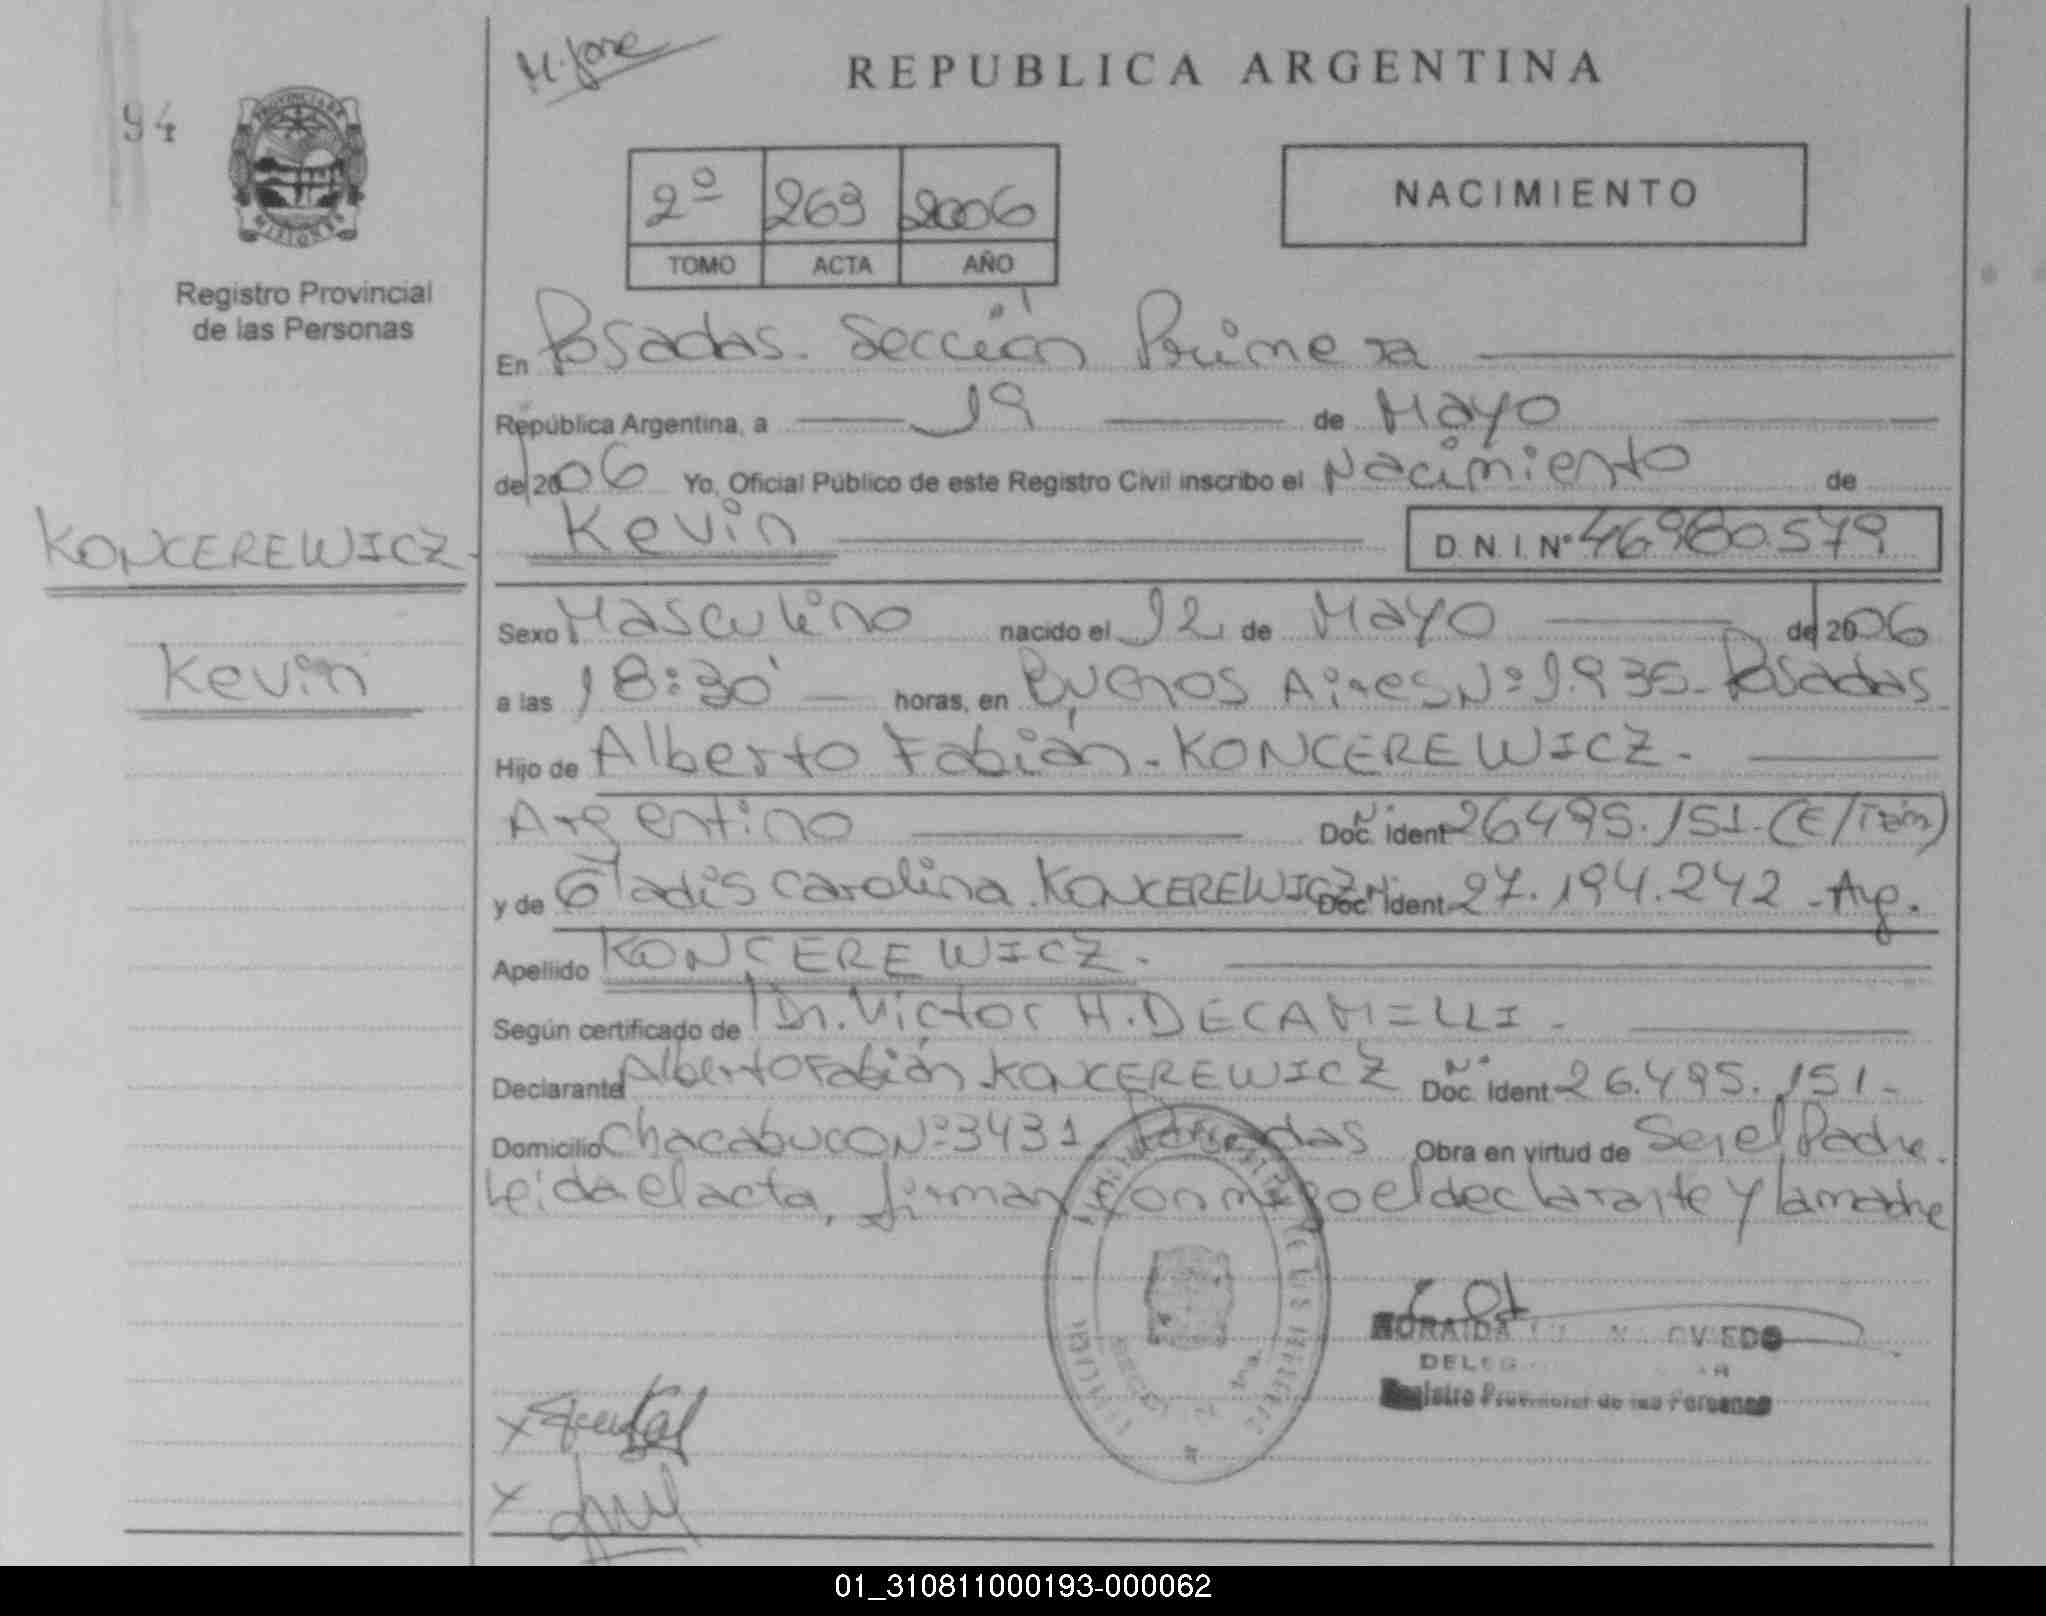 94
M. Jose
REPUBLICA ARGENTINA
PROVINCIA DE
MISIONES
Registro Provincial
de las Personas
2º 263 2006
TOMO ACTA AÑO
NACIMIENTO
En Posadas. Sección Primera
República Argentina, a 19 de Mayo
de 2006 Yo, Oficial Público de este Registro Civil inscribo el Nacimiento de
KONCEREWICZ
Kevin
Kevin D.N.I. Nº 46.980.579
Sexo Masculino nacido el 12 de Mayo de 2006
a las 18:30' horas, en Buenos Aires Nº 1.935. Posadas
Hijo de Alberto Fabián. KONCEREWICZ.
Argentino Doc. Ident Nº 26.495.151. (E/Trám)
y de Gladis Carolina. KONCEREWICZ Doc. Ident Nº 27.194.242 - Arg.
Apellido KONCEREWICZ.
Según certificado de Dr. Victor H. DECAMILLI.
Declarante Alberto Fabián. KONCEREWICZ Doc. Ident Nº 26.495.151-
Domicilio Chacabuco Nº 3431. Posadas Obra en virtud de Ser el Padre.
Leida el acta, firman conmigo el declarante y la madre
OVIEDO
Registro Provincial de las Personas
01_310811000193-000062